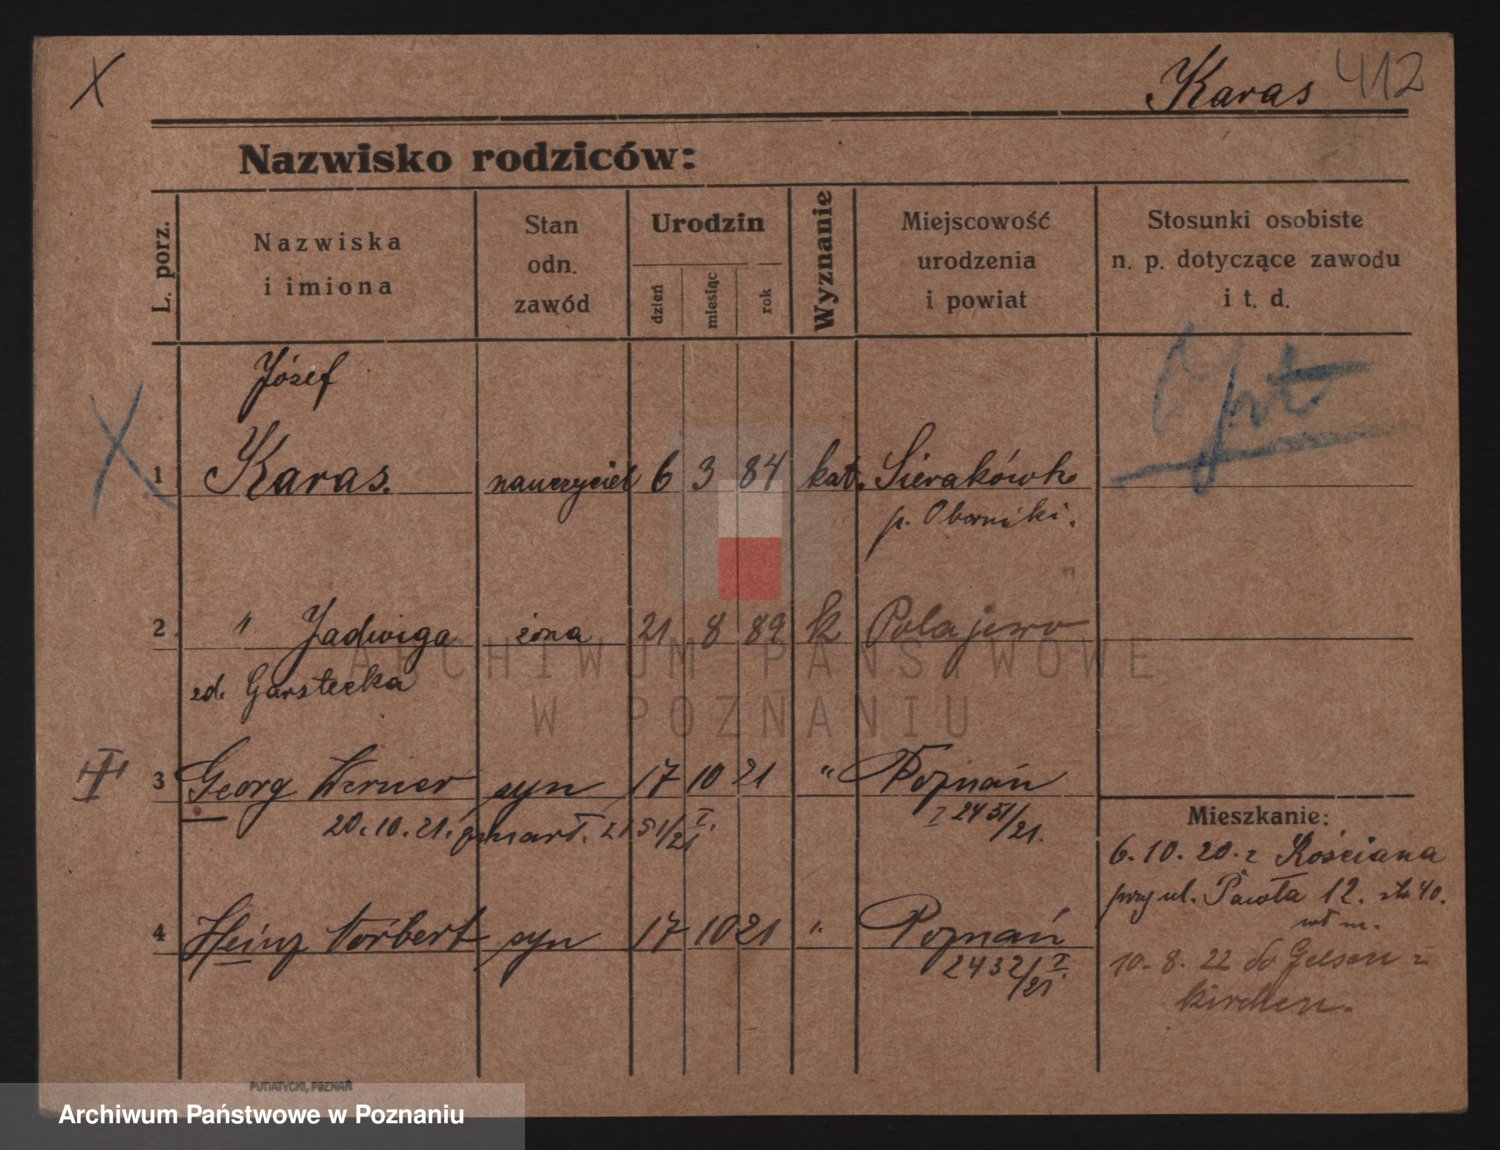 X
Karas 412
Nazwisko rodziców:
L. porz.
Nazwiska
i imiona
Stan
odn.
zawód
Urodzin
dzień
miesiąc
rok
Wyznanie
Miejscowość
urodzenia
i powiat
Stosunki osobiste
n. p. dotyczące zawodu
i t. d.
Józef
Opt
X 1 Karas. nauczyciel 6 3 84 kat. Sierakówko
p. Oborniki.
2 " Jadwiga żona 21 8 89 k Polajewo
zd. Garstecka
3 Georg Werner syn 17 10 21 " Poznań
20.10.21. zmarł. 2151/21 I. I 2431/21.
4 Heinz Norbert syn 17 10 21 " Poznań
2432/21 I.
Mieszkanie:
6.10.20. z Kościana
przy ul. Pawła 12. 40.
10.8.22 do Gelsen=
kirchen.
PUTIATYCKI, POZNAŃ
ARCHIWUM PAŃSTWOWE
W POZNANIU
Archiwum Państwowe w Poznaniu